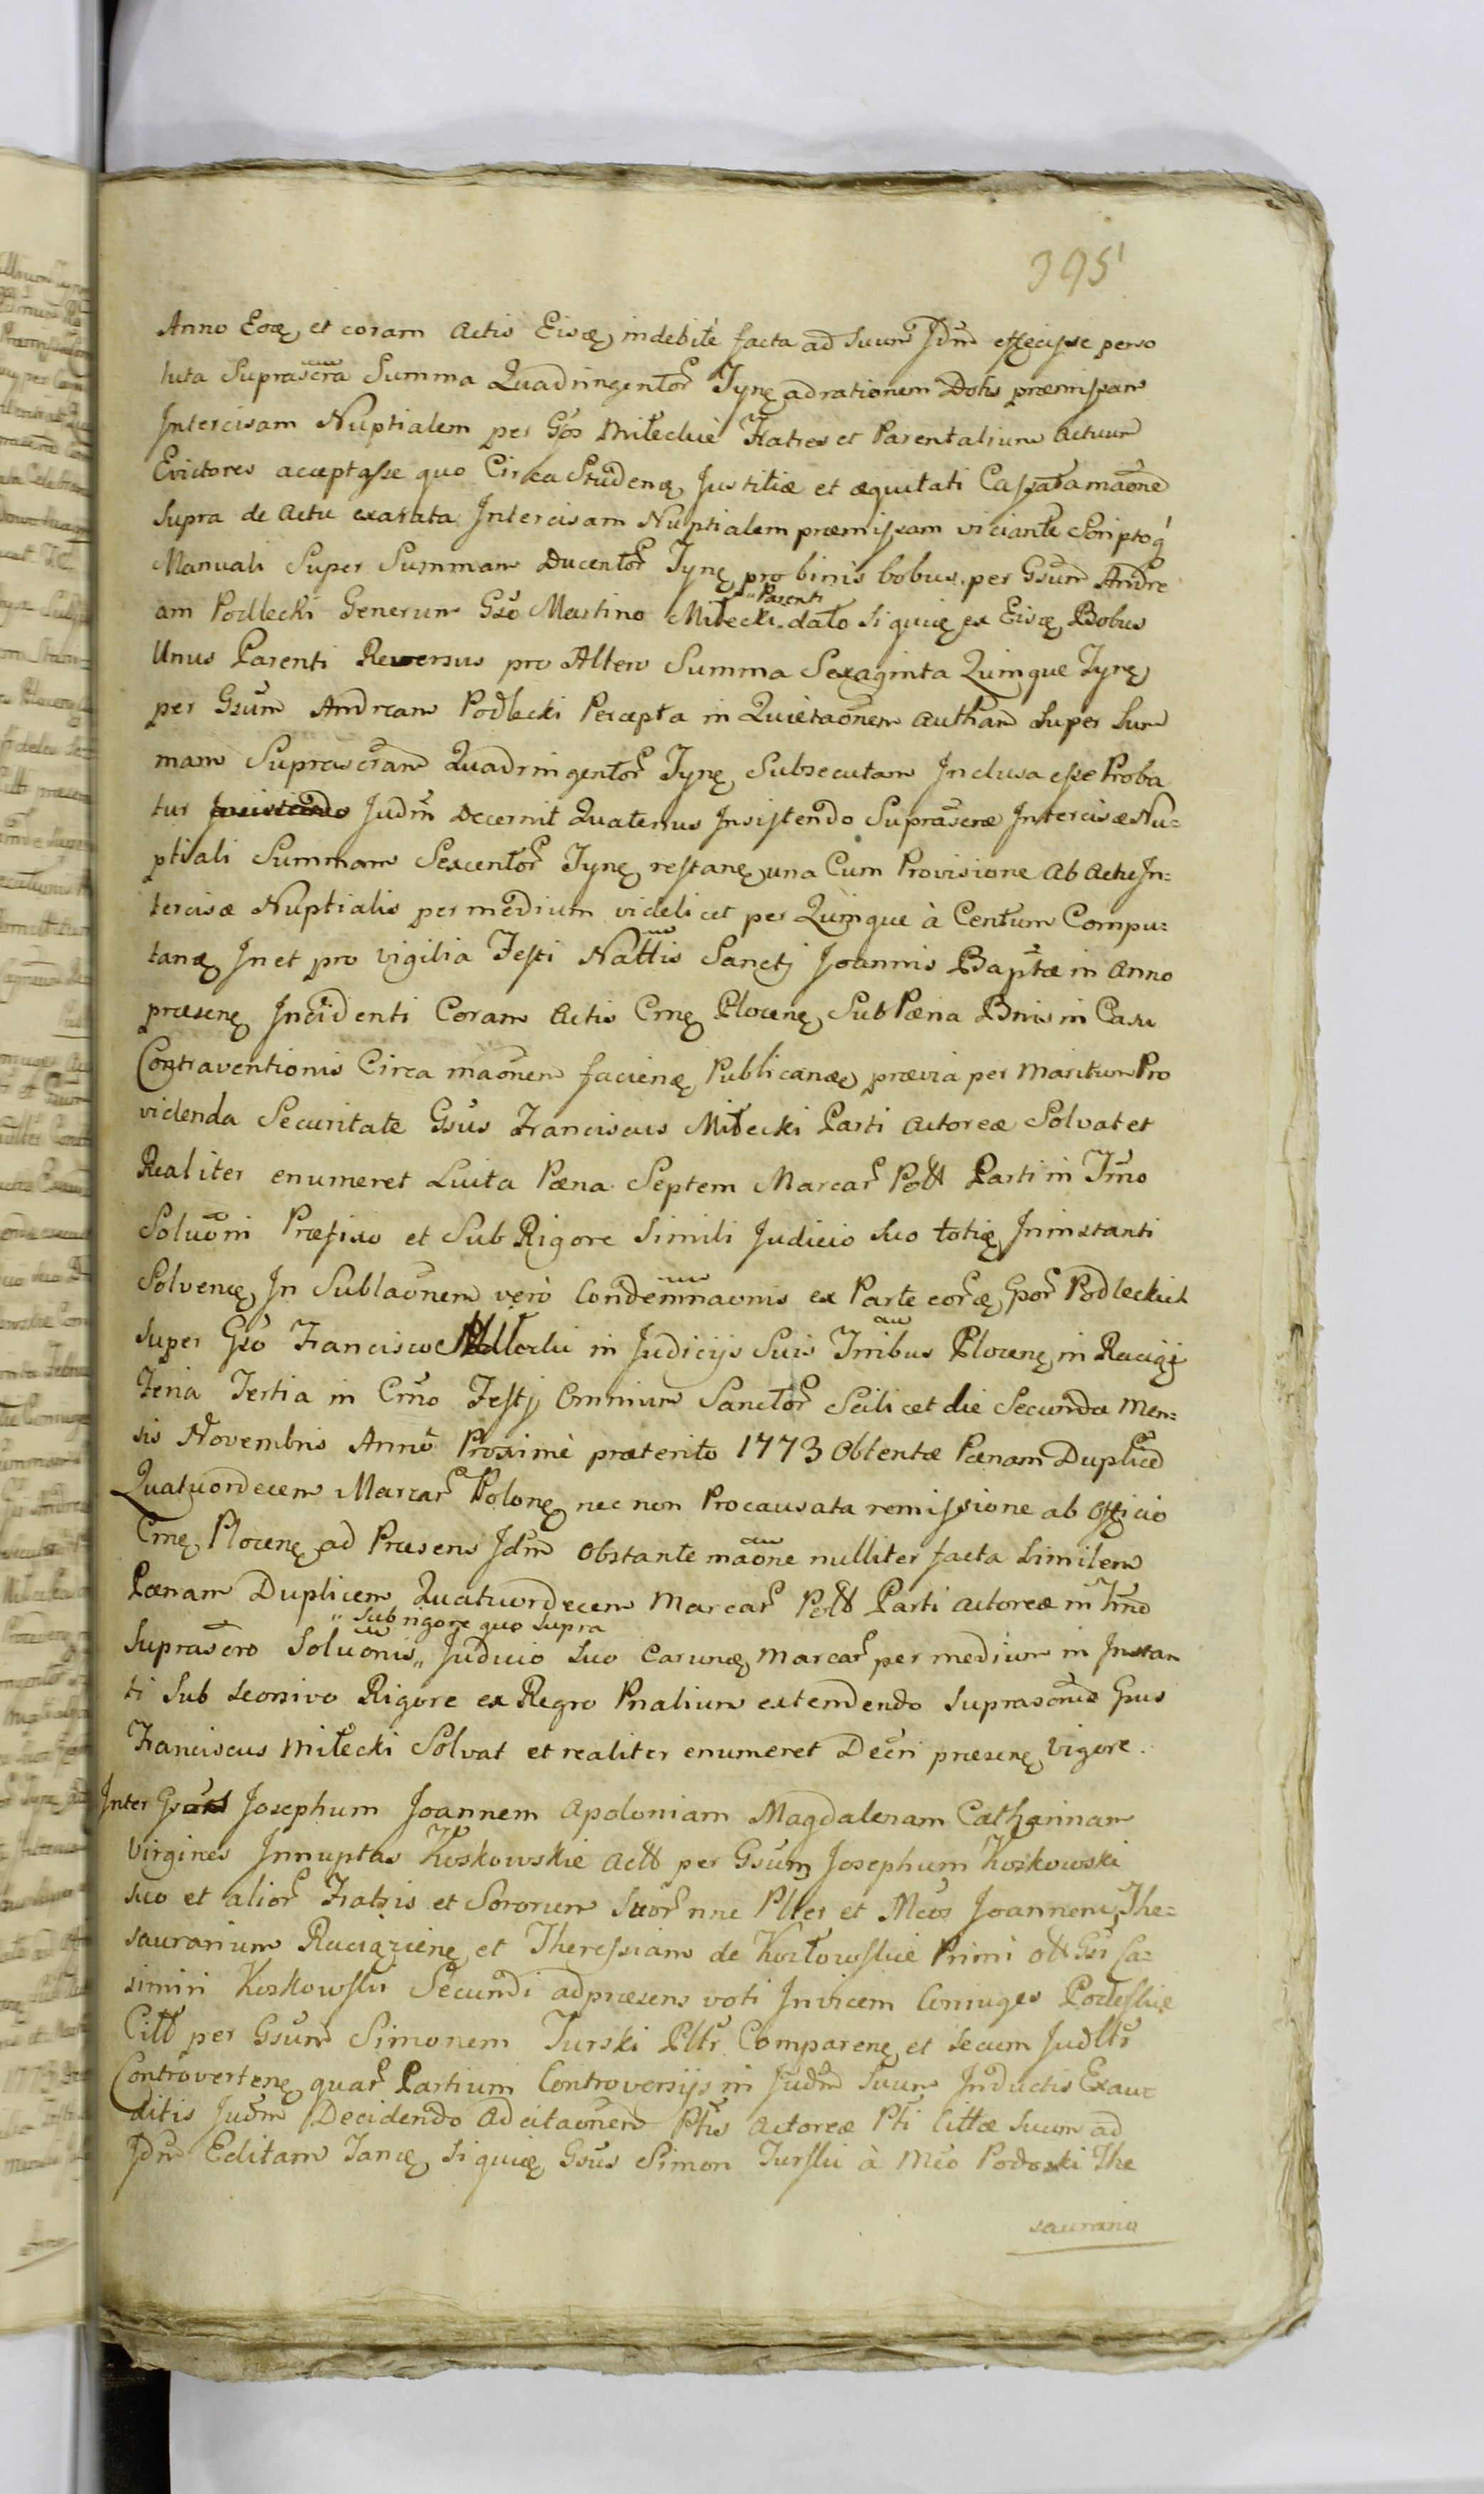 395
Anno Eoq, et coram Actis Eisq, indebitè facta ad Suum Jdm effecisse perso
luta Suprascra Summa Quadringentor Tynf, ad rationem Dotis præmissam
Intercisam Nuptialem per Gsos Miłeckie Fratres et Parentalium Actuum
Evictores acceptasse quo Circa Studenq, Justitiæ et æquitati Cassata maone
Supra de Actu exarata Intercisam Nuptialem præmissam viciante Scripto q
Manuali Super Summam Ducentor Tynf, pro binis bobus per Gsum Andre
am Podlecki Generum Gso Martino Miłecki „Parenti dato siquiq, ex Eisq, Bobus
Unus Parenti Reversus pro Altero Summa Sexaginta Quinque Tynf,
per Gsum Andream Podlecki Percepta in Quietaonem Autham Super Sum
mam Suprascram Quadringentor Tynf, Subsecutam Inclusa esse Proba
tur Judm Decernit Quatenus Insistendo Suprascræ Intercisæ Nu=
ptiali Summam Sexcentor Tynf, restanq, una Cum Provisione Ab Actu In=
tercisæ Nuptialis per medium videlicet per Quinque à Centum Compu=
tanq, In et pro vigilia Festi Nattis Sancti Joannis Baptæ in Anno
præsenq, Incidenti Coram Actis Crnq, Plocenq, Sub Pœna Bnis in Casu
Contraventionis Circa maonem facienq, Publicanq, prævia per Maritum Pro
videnda Securitate Gsus Franciscus Miłecki Parti Actoreæ Solvat et
Realiter enumeret Luita Pœna Septem Marcar Poll Parti in Trno
Soluoni Præfixo et Sub Rigore Simili Judicio Suo totiq, In instanti
Solvenq, In Sublaonem verò Condemnaonis ex Parte eorq, Gsor Podleckich
Super Gso Francisco Miłecki in Judicijs Suis Trribus Plocenq, in Raciąż
Feria Tertia in Crno Festj Omnium Sanctor Scilicet die Secunda Men=
sis Novembris Anno Proximè præterito 1773 Obtentæ Pœnam Duplicem
Quatuordecem Marcar Polonq, nec non Procausata remissione ab Officio
Crnq, Plocenq, ad Præsens Jdm Obstante maone nulliter facta Similem
Pœnam Duplicem Quatuordecem Marcar Poll Parti Actoreæ in Trno
Suprascro Soluonis „Sub rigore quo Supra„ Judicio Suo Earunq, Marcar per medium in Instan
ti Sub Seorsivo Rigore ex Regro Pnalium extendendo Suprascrus Gsus
Franciscus Miłecki Solvat et realiter enumeret Decri præsenq, Vigore.
Inter Gsos Josephum Joannem Apoloniam Magdalenam Catharinam
Virgines Innuptas Koskowskie Actt per Gsum Josephum Koskowski
suo et alior Fratris et Sororum Suor nne Plter et Mcos Joannem The=
saurarium Raciązienq, et Theressiam de Kozłowskie Primi ott Gsi Ca=
simiri Koskowski Secundi ad præsens voti Invicem Conjuges Podoskie
Citt per Gsum Simonem Turski Pltr Comparenq, et Secum Judltr
Controvertenq, quar Partium Controversijs in Judm Suum Inductis Exau=
ditis Judm Decidendo Ad citaonem Ptis Actoreæ Pti Cittæ Suum ad
Jdm Editam Tanq, siquiq, Gsus Simon Turski à Mco Podoski The
saurario